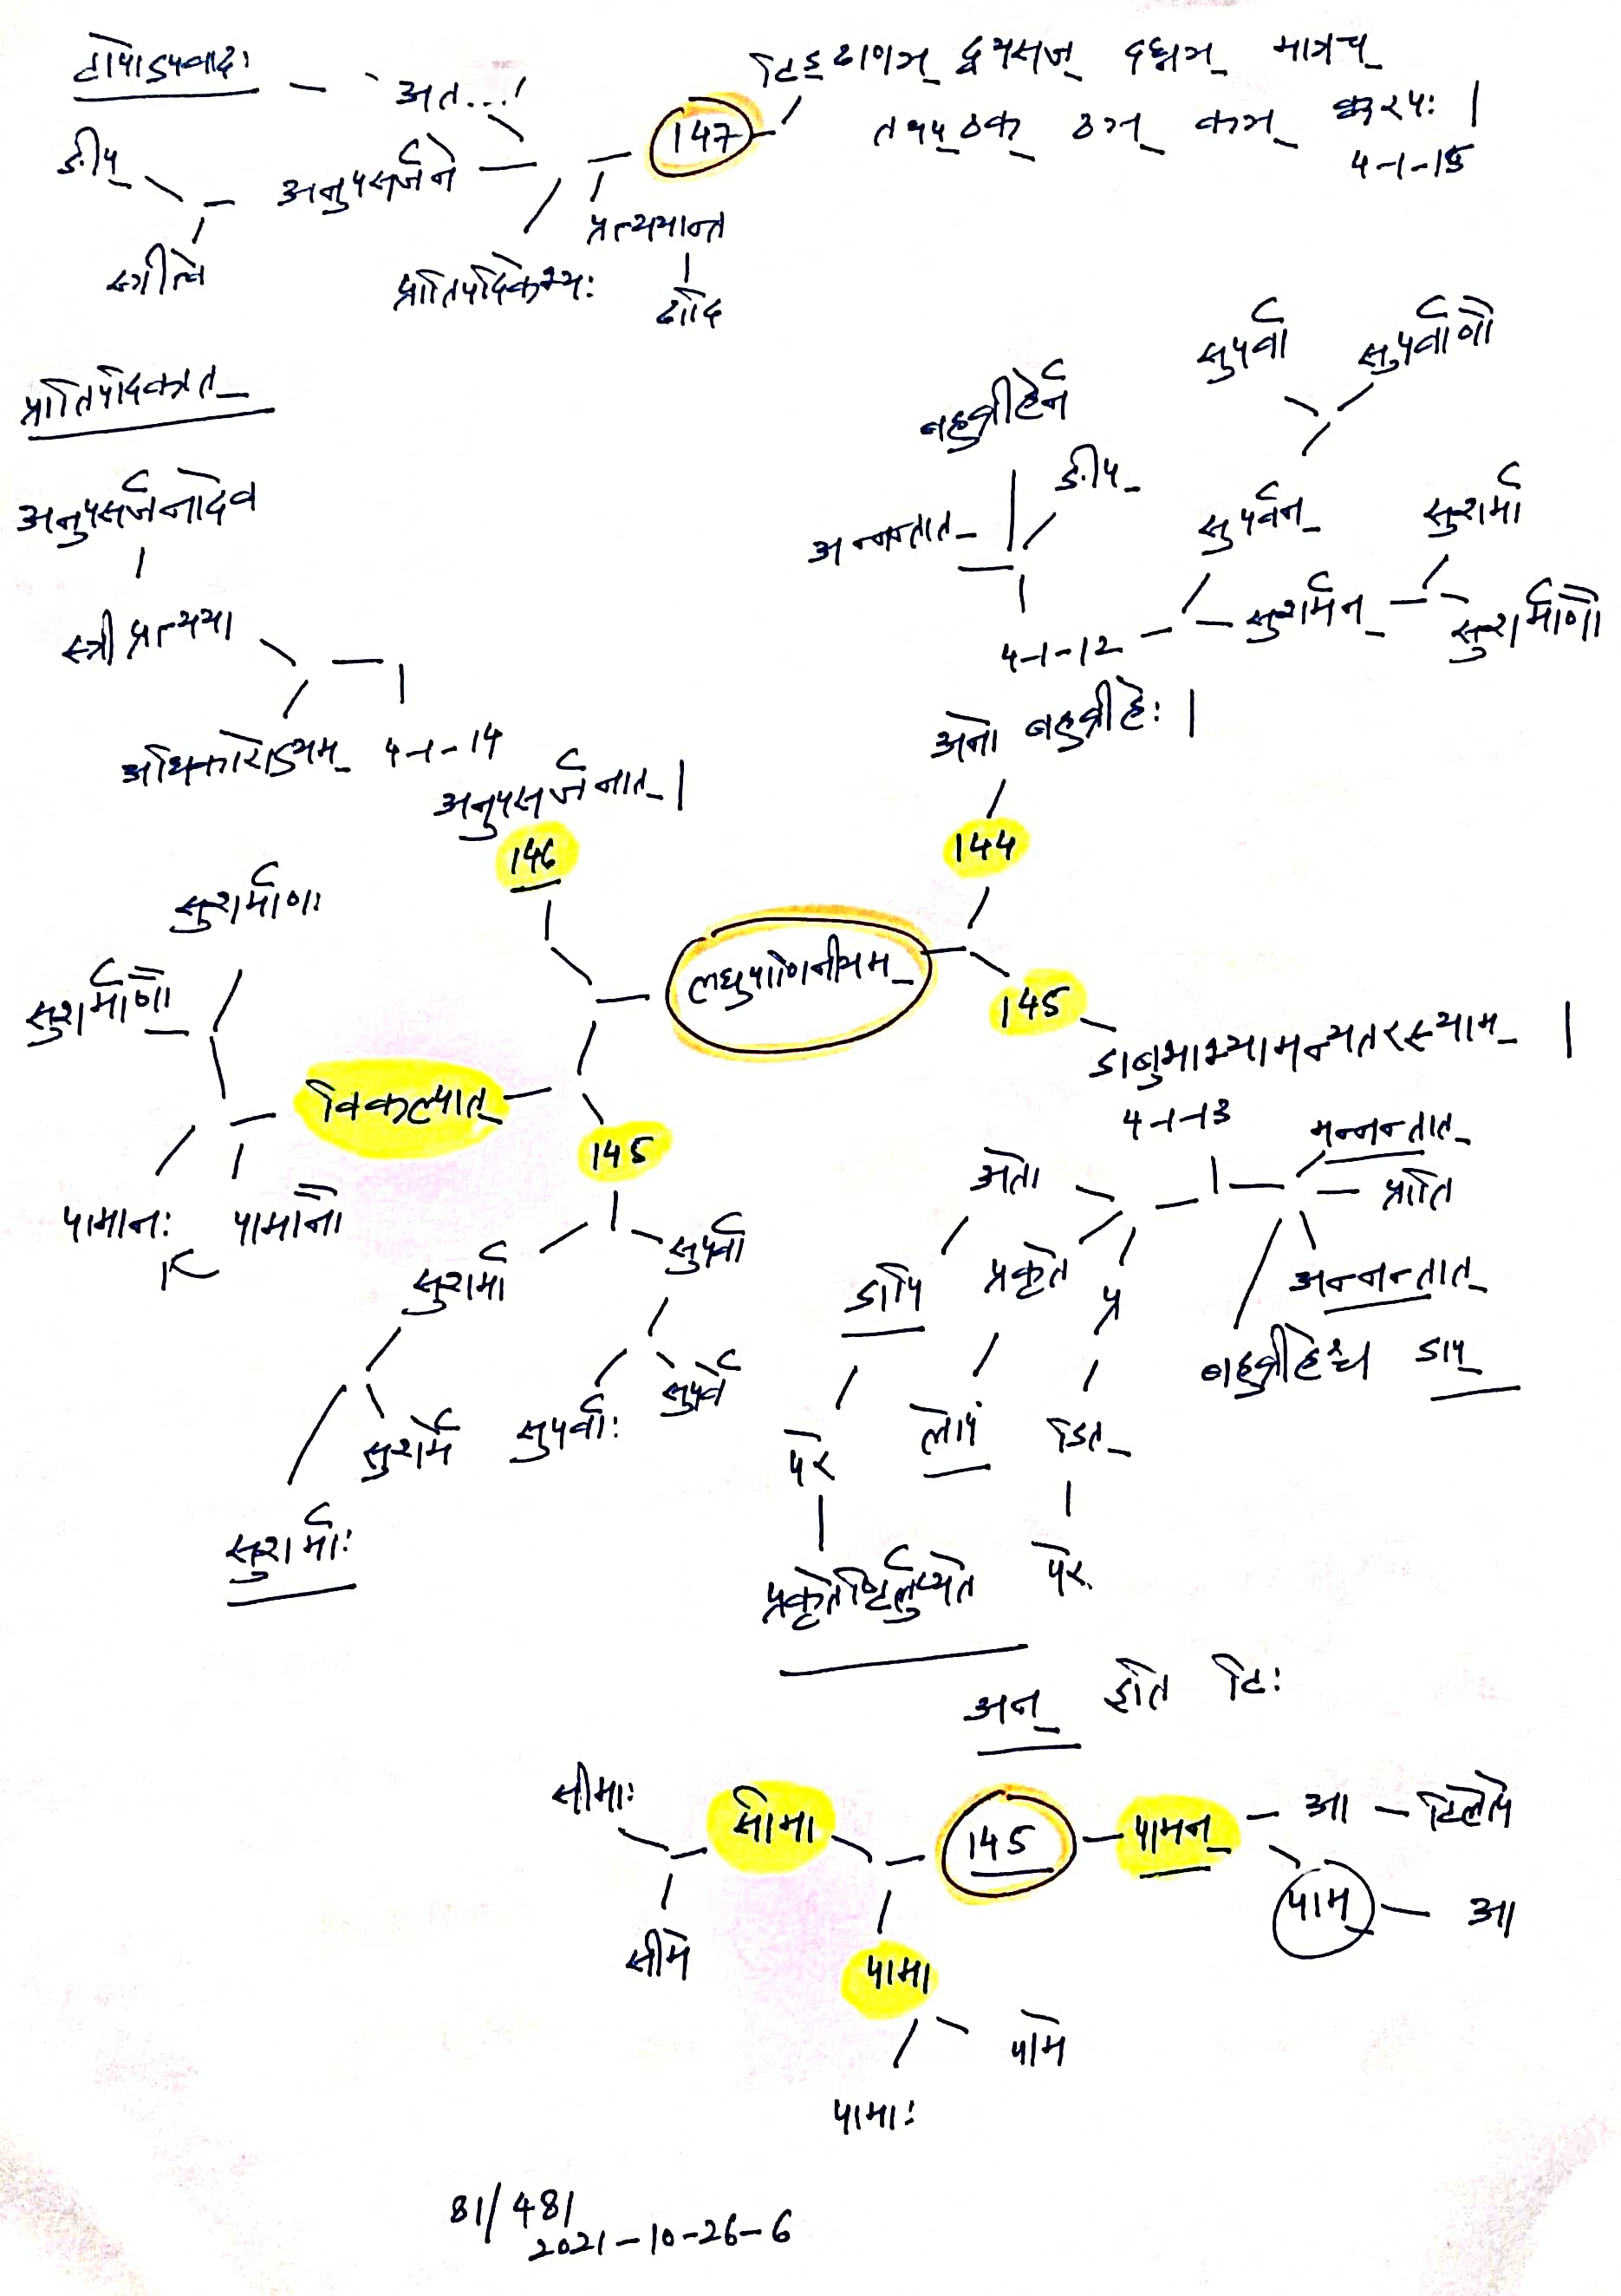 टापोऽपवादः
अत...!
147
टिड् ढाणञ् द्वयसज् दघ्नञ् मात्रच्
तयप् ठक् ठञ् कञ् क्वरपः |
4-1-15
ङीप्
अनुपसर्जने
स्त्रीत्वे
प्रातिपदिकेभ्यः
प्रत्ययान्त
प्रातिपदिकात्
अनुपसर्जनादेव
स्त्री प्रत्यया
अधिकारोऽयम् 4-1-14
अनुपसर्जनात् |
146
बहुव्रीहेर्न
ङीप्
अन्नन्तात्
4-1-12
सुपर्वा
सुपर्वाणौ
सुपर्वन्
सुशर्मा
सुशर्मन्
सुशर्माणौ
अनो बहुव्रीहेः |
144
लघुपाणिनीयम्
145
डाबुभाभ्यामन्यतरस्याम् |
4-1-13
सुशर्माणः
सुशर्माणौ
विकल्पात्
पामानः
पामानौ
145
सुशर्मा
सुपर्वा
सुशर्मे
सुपर्वाः
सुपर्वे
सुशर्माः
मन्नन्तात्
प्राति
अन्नन्तात्
बहुव्रीहेश्च डाप्
अतो
डापि
प्रकृते
प्र
परे
लोपं
डित्
परे
प्रकृतेष्टिर्लुप्यते
अन् इति टिः
सीमाः
सीमा
145
पामन्
आ
टिलोपे
पाम्
आ
सीमे
पामा
पामे
पामाः
81/481
2021-10-26-6